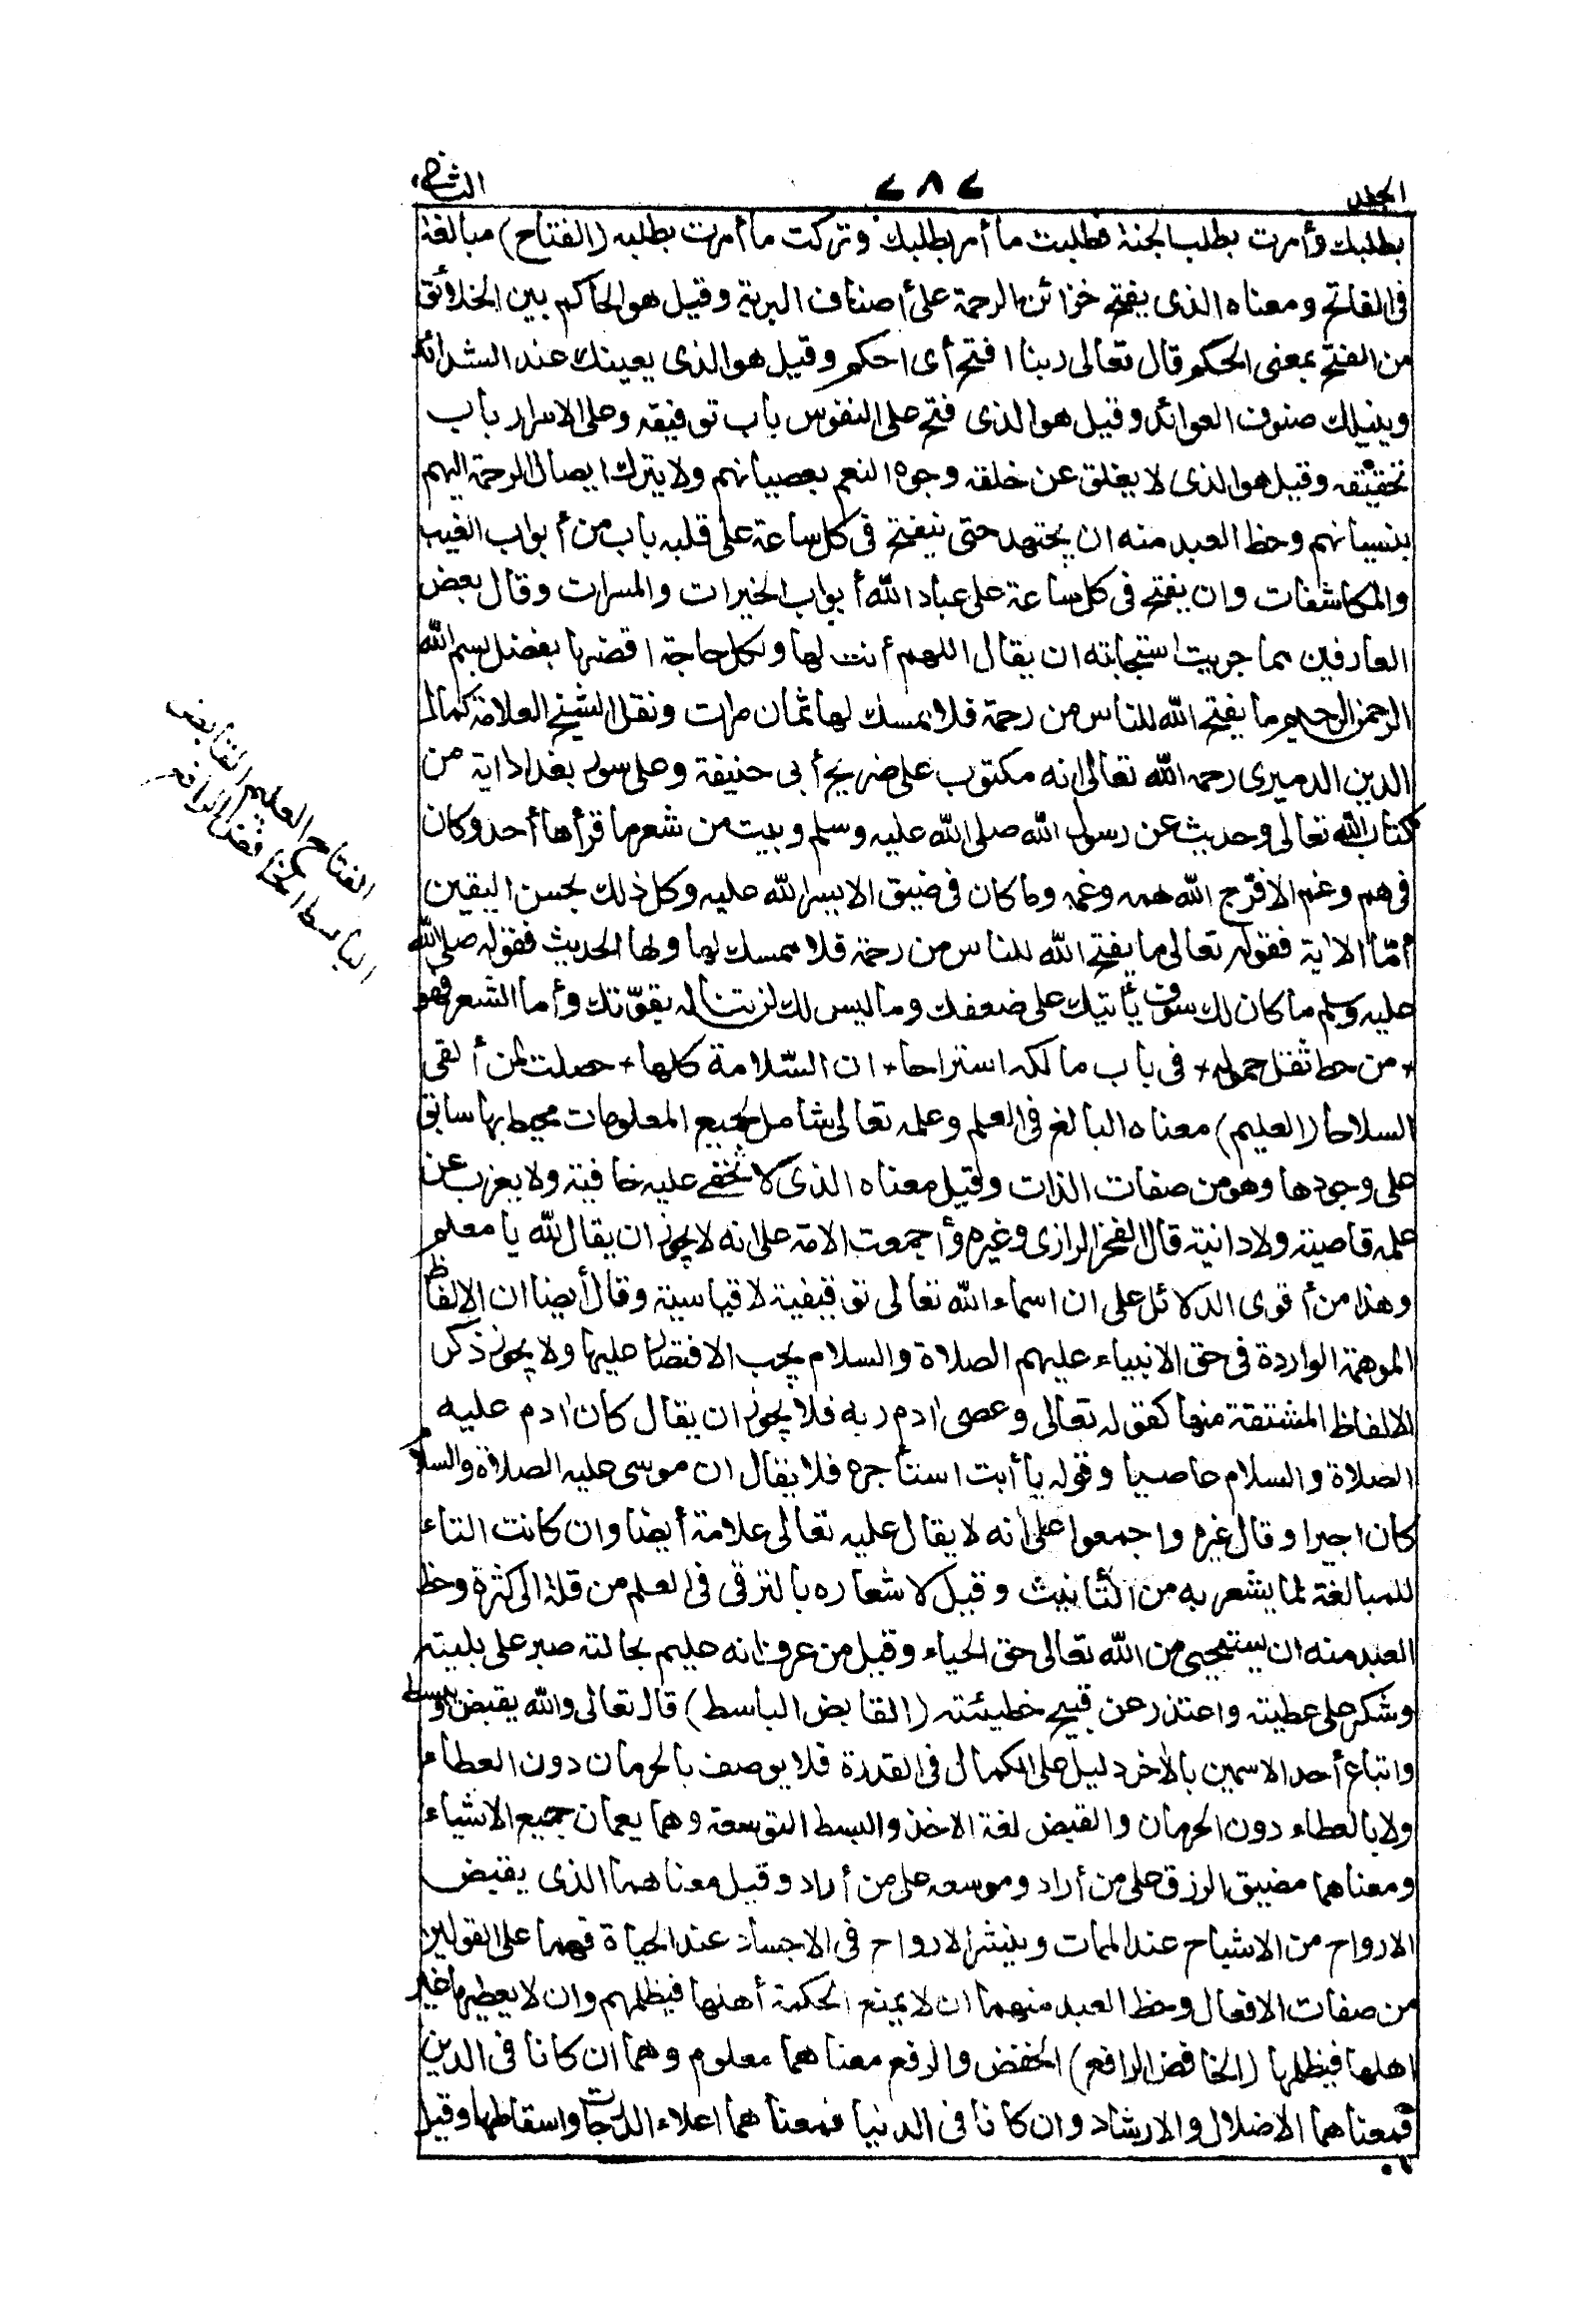 الجلد ٢٨٢ الثانى
بطلبك وأمرت بطلب الجنة فطلبت ما أمر بطلبك وتركت ما أمرت بطلبه (الفتاح) مبالغة
فى الفاتح ومعناه الذى يفتح خزائن الرحمة على أصناف البرية وقيل هو الحاكم بين الخلائق
من الفتح بمعنى الحكم قال تعالى ربنا افتح أى احكم وقيل هو الذى يعينك عند الشدائد
وينيلك صنوف العوائد وقيل هو الذى فتح على النفوس باب توفيقه وعلى الاسرار باب
تحقيقه وقيل هو الذى لا يغلق عن خلقه وجوه النعم بعصيانهم ولا يترك ايصال الرحمة اليهم
بنسيانهم وحظ العبد منه ان يجتهد حتى ينفتح فى كل ساعة على قلبه باب من أبواب الغيب
والمكاشفات وان يفتح فى كل ساعة على عباد الله أبواب الخيرات والمسرات وقال بعض
العارفين مما جربت استجابته ان يقال اللهم أنت لها ولكل حاجة اقضها بفضل بسم الله
الرحمن الرحيم ما يفتح الله للناس من رحمة فلا ممسك لها ثمان مرات ونقل الشيخ العلامة كمال
الدين الدميرى رحمه الله تعالى انه مكتوب على ضريح أبى حنيفة وعلى سور بغداد اية من
كتاب الله تعالى وحديث عن رسول الله صلى الله عليه وسلم وبيت من شعر ما قرأها أحد وكان
فى هم وغم الا فرّج الله همه وغمه وما كان فى ضيق الا يسر الله عليه وكل ذلك بحسن اليقين
أمّا الاية فقوله تعالى ما يفتح الله للناس من رحمة فلا ممسك لها ولها الحديث فقوله صلى الله
عليه وسلم ما كان لك سوف يأتيك على ضعفك وما ليس لك لن تناله بقوّتك وأما الشعر فهو
* من حط ثقل حموله * فى باب مالكه استراحا * ان السّلامة كلها * حصلت لمن ألقى
السلاحا (العليم) معناه البالغ فى العلم وعلمه تعالى شامل لجميع المعلومات محيط بها سابق
على وجودها وهو من صفات الذات وقيل معناه الذى لا تخفى عليه خافية ولا يعزب عن
علمه قاصية ولا دانية قال الفخر الرازى وغيره وأجمعت الامة على انه لا يجوز ان يقال لله يا معلم
وهذا من أقوى الدلائل على ان اسماء الله تعالى توقيفية لا قياسية وقال أيضا ان الالفاظ
الموهمة الواردة فى حق الانبياء عليهم الصلاة والسلام يجب الاقتصار عليها ولا يجوز ذكر
الالفاظ المشتقة منها كقوله تعالى وعصى ادم ربه فلا يجوز ان يقال كان ادم عليه
الصلاة والسلام عاصيا وقوله يا أبت استأجره فلا يقال ان موسى عليه الصلاة والسلام
كان اجيرا وقال غيره واجمعوا على أنه لا يقال عليه تعالى علامة أيضا وان كانت التاء
للمبالغة لما يشعر به من التأنيث وقيل لاشعاره بالترقى فى العلم من قلة الى كثرة وحظ
العبد منه ان يستحيى من الله تعالى حق الحياء وقيل من عرف انه عليم بحالته صبر على بليته
وشكر على عطيته واعتذر عن قبيح خطيئته (القابض الباسط) قال تعالى والله يقبض ويبسط
واتباع أحد الاسمين بالاخر دليل على الكمال فى القدرة فلا يوصف بالحرمان دون العطاء
ولا بالعطاء دون الحرمان والقبض لغة الاخذ والبسط التوسعة وهما يعمان جميع الاشياء
ومعناهما مضيق الرزق على من أراد وموسعه على من أراد وقيل معناهما الذى يقبض
الارواح من الاشباح عند الممات وينشر الارواح فى الاجساد عند الحياة فهما على القولين
من صفات الافعال وحظ العبد منهما ان لا يمنع الحكمة أهلها فيظلمهم وان لا يعطيها غير
اهلها فيظلمها (الخافض الرافع) الخفض والرفع معناهما معلوم وهما ان كانا فى الدين
فمعناهما الاضلال والارشاد وان كانا فى الدنيا فمعناهما اعلاء الدرجات واسقاطها وقيل
الفتاح العليم القابض
الباسط الخافض الرافع